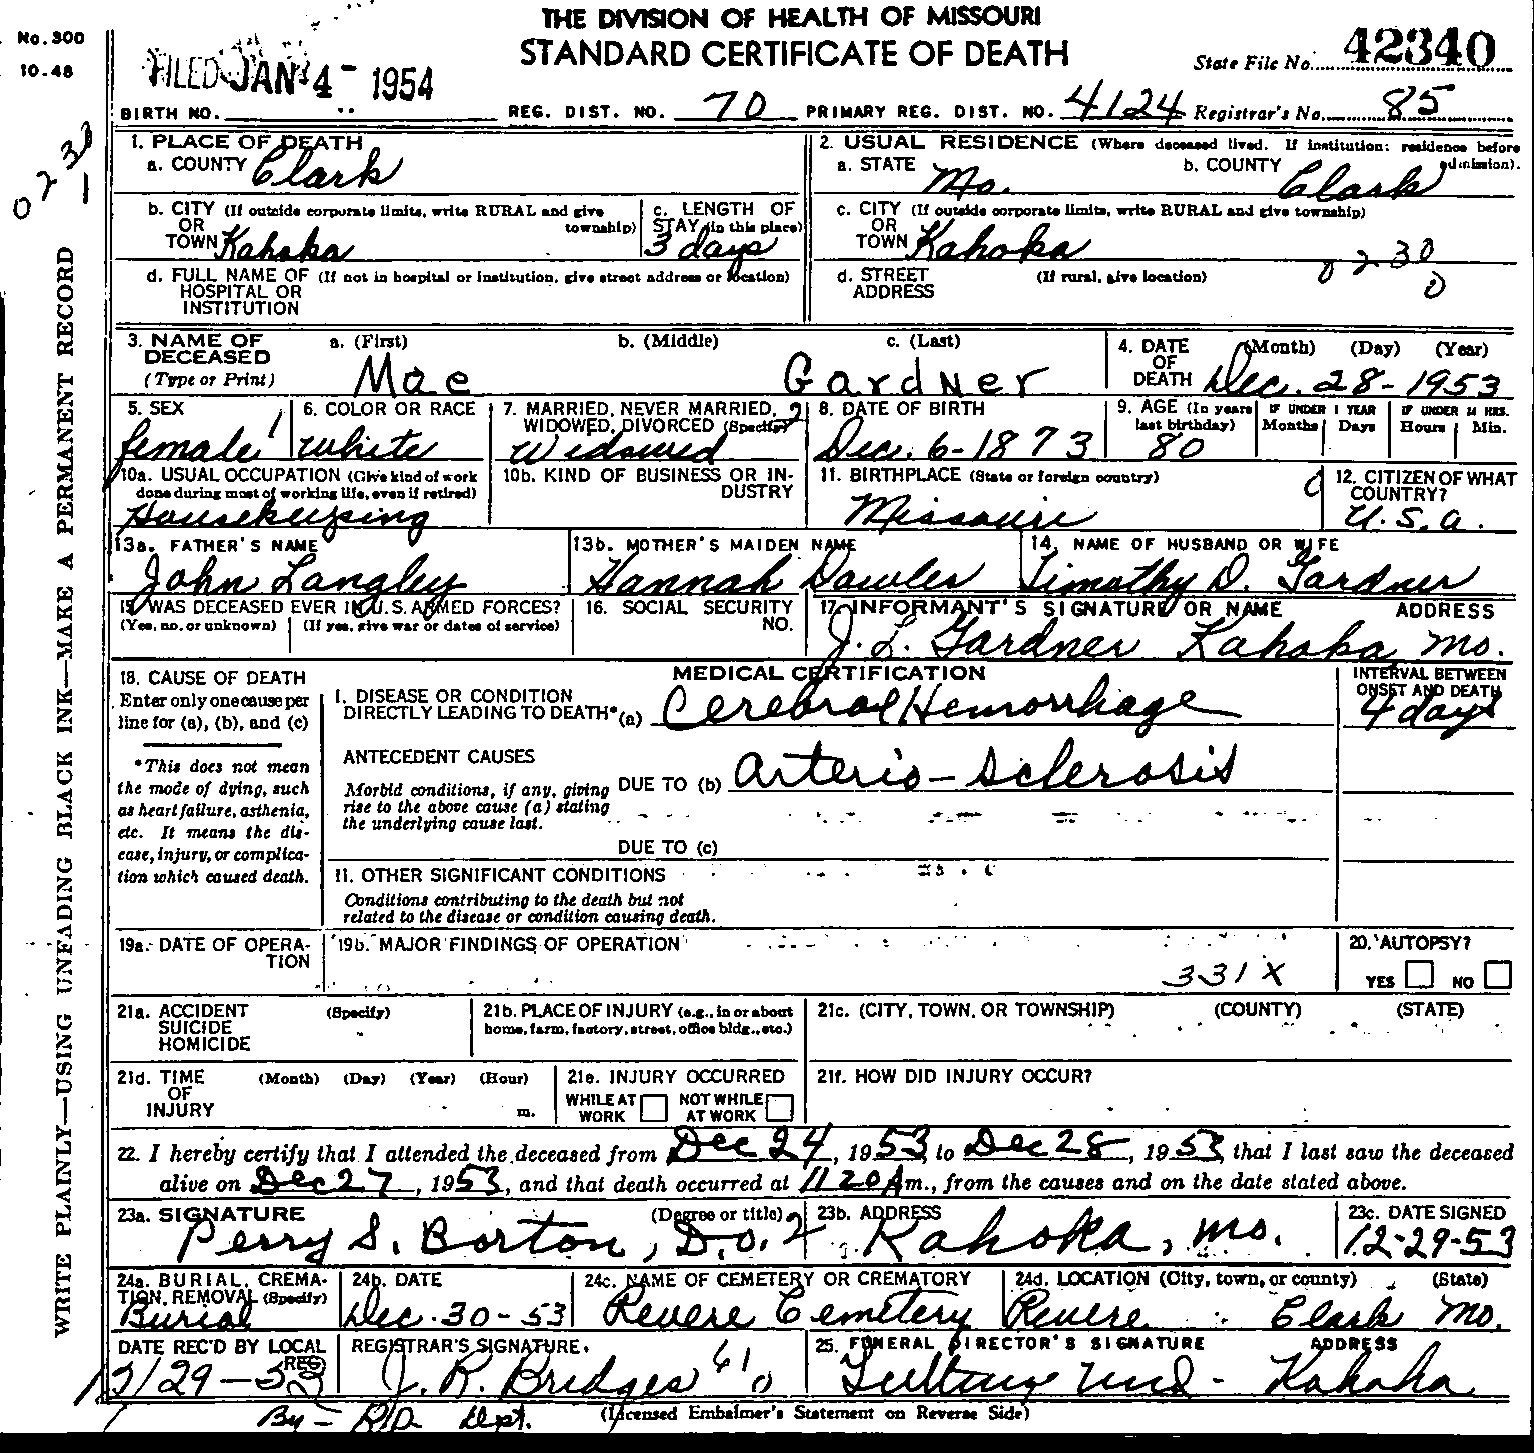 THE DIVISION OF HEALTH OF MISSOURI
STANDARD CERTIFICATE OF DEATH
No. 300
10-48
FILED JAN 4 - 1954
State File No. 42340
BIRTH NO. REG. DIST. NO. 70 PRIMARY REG. DIST. NO. 4124 Registrar's No. 85
0231
WRITE PLAINLY—USING UNFADING BLACK INK—MAKE A PERMANENT RECORD
1. PLACE OF DEATH
a. COUNTY Clark
2. USUAL RESIDENCE (Where deceased lived. If institution: residence before admission).
a. STATE Mo. b. COUNTY Clark
b. CITY (If outside corporate limits, write RURAL and give township)
OR
TOWN Kahoka
c. LENGTH OF
STAY (in this place)
3 days
c. CITY (If outside corporate limits, write RURAL and give township)
OR
TOWN Kahoka
0230
0
d. FULL NAME OF (If not in hospital or institution, give street address or location)
HOSPITAL OR
INSTITUTION
d. STREET (If rural, give location)
ADDRESS
3. NAME OF DECEASED (Type or Print)
a. (First) b. (Middle) c. (Last)
Mae Gardner
4. DATE OF DEATH (Month) (Day) (Year)
Dec. 28-1953
5. SEX
female 1
6. COLOR OR RACE
white
7. MARRIED, NEVER MARRIED, WIDOWED, DIVORCED (Specify) 2
Widowed
8. DATE OF BIRTH
Dec. 6-1873
9. AGE (In years last birthday)
80
IF UNDER 1 YEAR
Months Days
IF UNDER 24 HRS.
Hours Min.
10a. USUAL OCCUPATION (Give kind of work done during most of working life, even if retired)
Housekeeping
10b. KIND OF BUSINESS OR INDUSTRY
11. BIRTHPLACE (State or foreign country)
Missouri 0
12. CITIZEN OF WHAT COUNTRY?
U.S.A.
13a. FATHER'S NAME
John Langley
13b. MOTHER'S MAIDEN NAME
Hannah Dowler
14. NAME OF HUSBAND OR WIFE
Timothy D. Gardner
15. WAS DECEASED EVER IN U.S. ARMED FORCES?
(Yes, no, or unknown) (If yes, give war or dates of service)
16. SOCIAL SECURITY NO.
17. INFORMANT'S SIGNATURE OR NAME ADDRESS
J. L. Gardner Kahoka Mo.
18. CAUSE OF DEATH
Enter only one cause per
line for (a), (b), and (c)
*This does not mean
the mode of dying, such
as heart failure, asthenia,
etc. It means the dis-
ease, injury, or complica-
tion which caused death.
MEDICAL CERTIFICATION
INTERVAL BETWEEN ONSET AND DEATH
I. DISEASE OR CONDITION
DIRECTLY LEADING TO DEATH* (a) Cerebral Hemorrhage 4 days
ANTECEDENT CAUSES
Morbid conditions, if any, giving
rise to the above cause (a) stating
the underlying cause last.
DUE TO (b) Arterio-sclerosis
DUE TO (c)
II. OTHER SIGNIFICANT CONDITIONS
Conditions contributing to the death but not
related to the disease or condition causing death.
19a. DATE OF OPERATION
19b. MAJOR FINDINGS OF OPERATION
331X
20. AUTOPSY?
YES NO
21a. ACCIDENT (Specify)
SUICIDE
HOMICIDE
21b. PLACE OF INJURY (e.g., in or about
home, farm, factory, street, office bldg., etc.)
21c. (CITY, TOWN, OR TOWNSHIP) (COUNTY) (STATE)
21d. TIME (Month) (Day) (Year) (Hour)
OF
INJURY m.
21e. INJURY OCCURRED
WHILE AT WORK NOT WHILE AT WORK
21f. HOW DID INJURY OCCUR?
22. I hereby certify that I attended the deceased from Dec 24, 1953 to Dec 28, 1953, that I last saw the deceased
alive on Dec 27, 1953, and that death occurred at 11 20 A m., from the causes and on the date stated above.
23a. SIGNATURE (Degree or title)
Perry S. Borton, D.O. 2
23b. ADDRESS
Kahoka, Mo.
23c. DATE SIGNED
12-29-53
24a. BURIAL, CREMATION, REMOVAL (Specify)
Burial
24b. DATE
Dec. 30-53
24c. NAME OF CEMETERY OR CREMATORY
Revere Cemetery
24d. LOCATION (City, town, or county) (State)
Revere Clark Mo.
DATE REC'D BY LOCAL REG.
12/29-53
REGISTRAR'S SIGNATURE
J. R. Bridges 61 0
25. FUNERAL DIRECTOR'S SIGNATURE ADDRESS
Kahoka
By - Dept.
(Licensed Embalmer's Statement on Reverse Side)